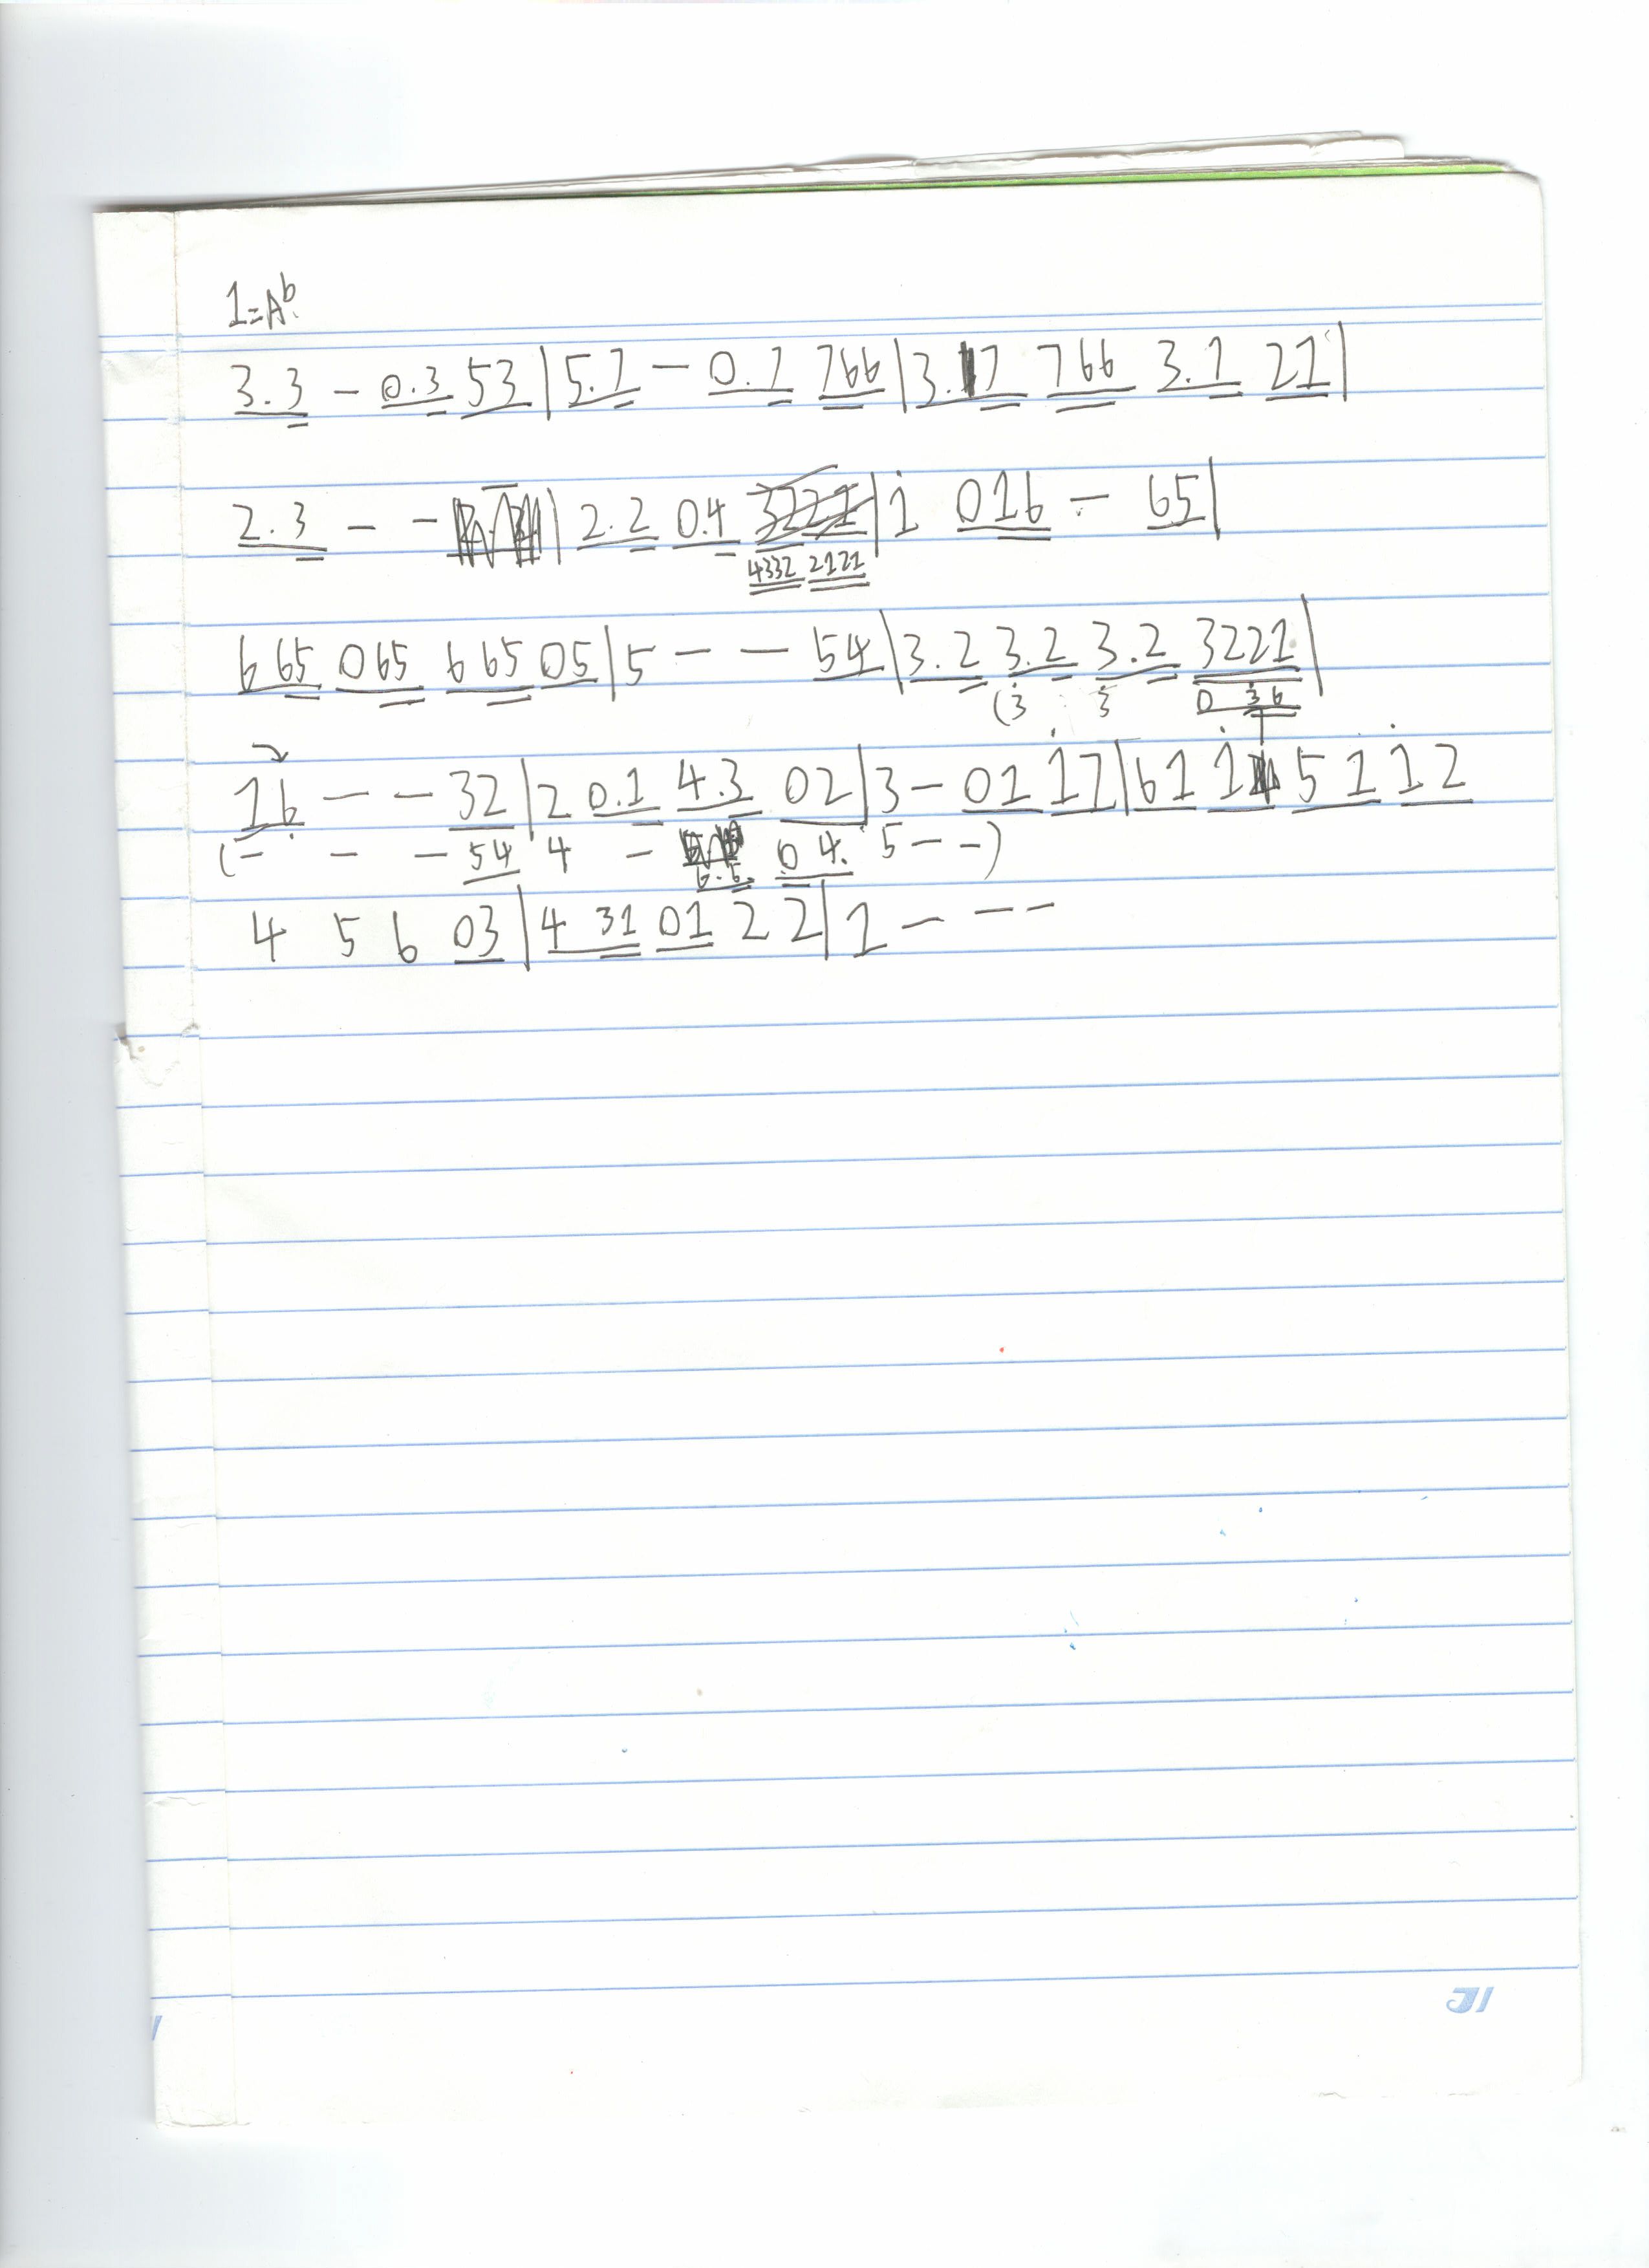 1=Ab
3.3 - 0.3 53 | 5.1 - 0.1 766 | 3.17 766 3.1 21 |
2.3 - - | 2.2 0.4 | 1̇ 016 - 65 |
4332 2121
6 65 065 6 65 05 | 5 - - - 54 | 3.2 3.2 3.2 3221 |
(3̇ 3̇ 0 3̇6
16̣ - - - 32 | 2 0.1 4.3 02 | 3 - 01 1̇7 | 61 1̇ 51 1̇2
(- - - 54 4 - 6.6. 04. 5 - -)
4 5 6 03 | 4 31 01 2 2 | 1 - - -